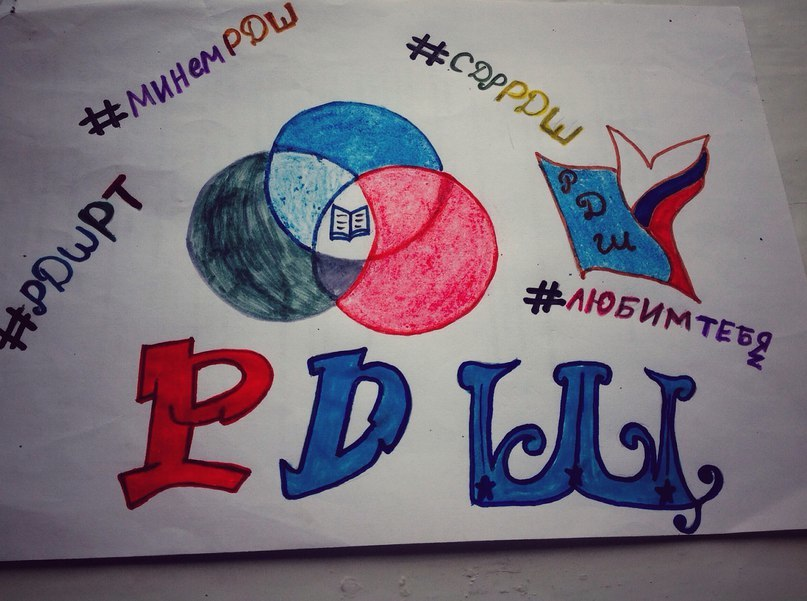 #минемРДШ
#СДРРДШ
#РДШРТ
РДШ
#ЛЮБИМТЕБЯ
РДЩ